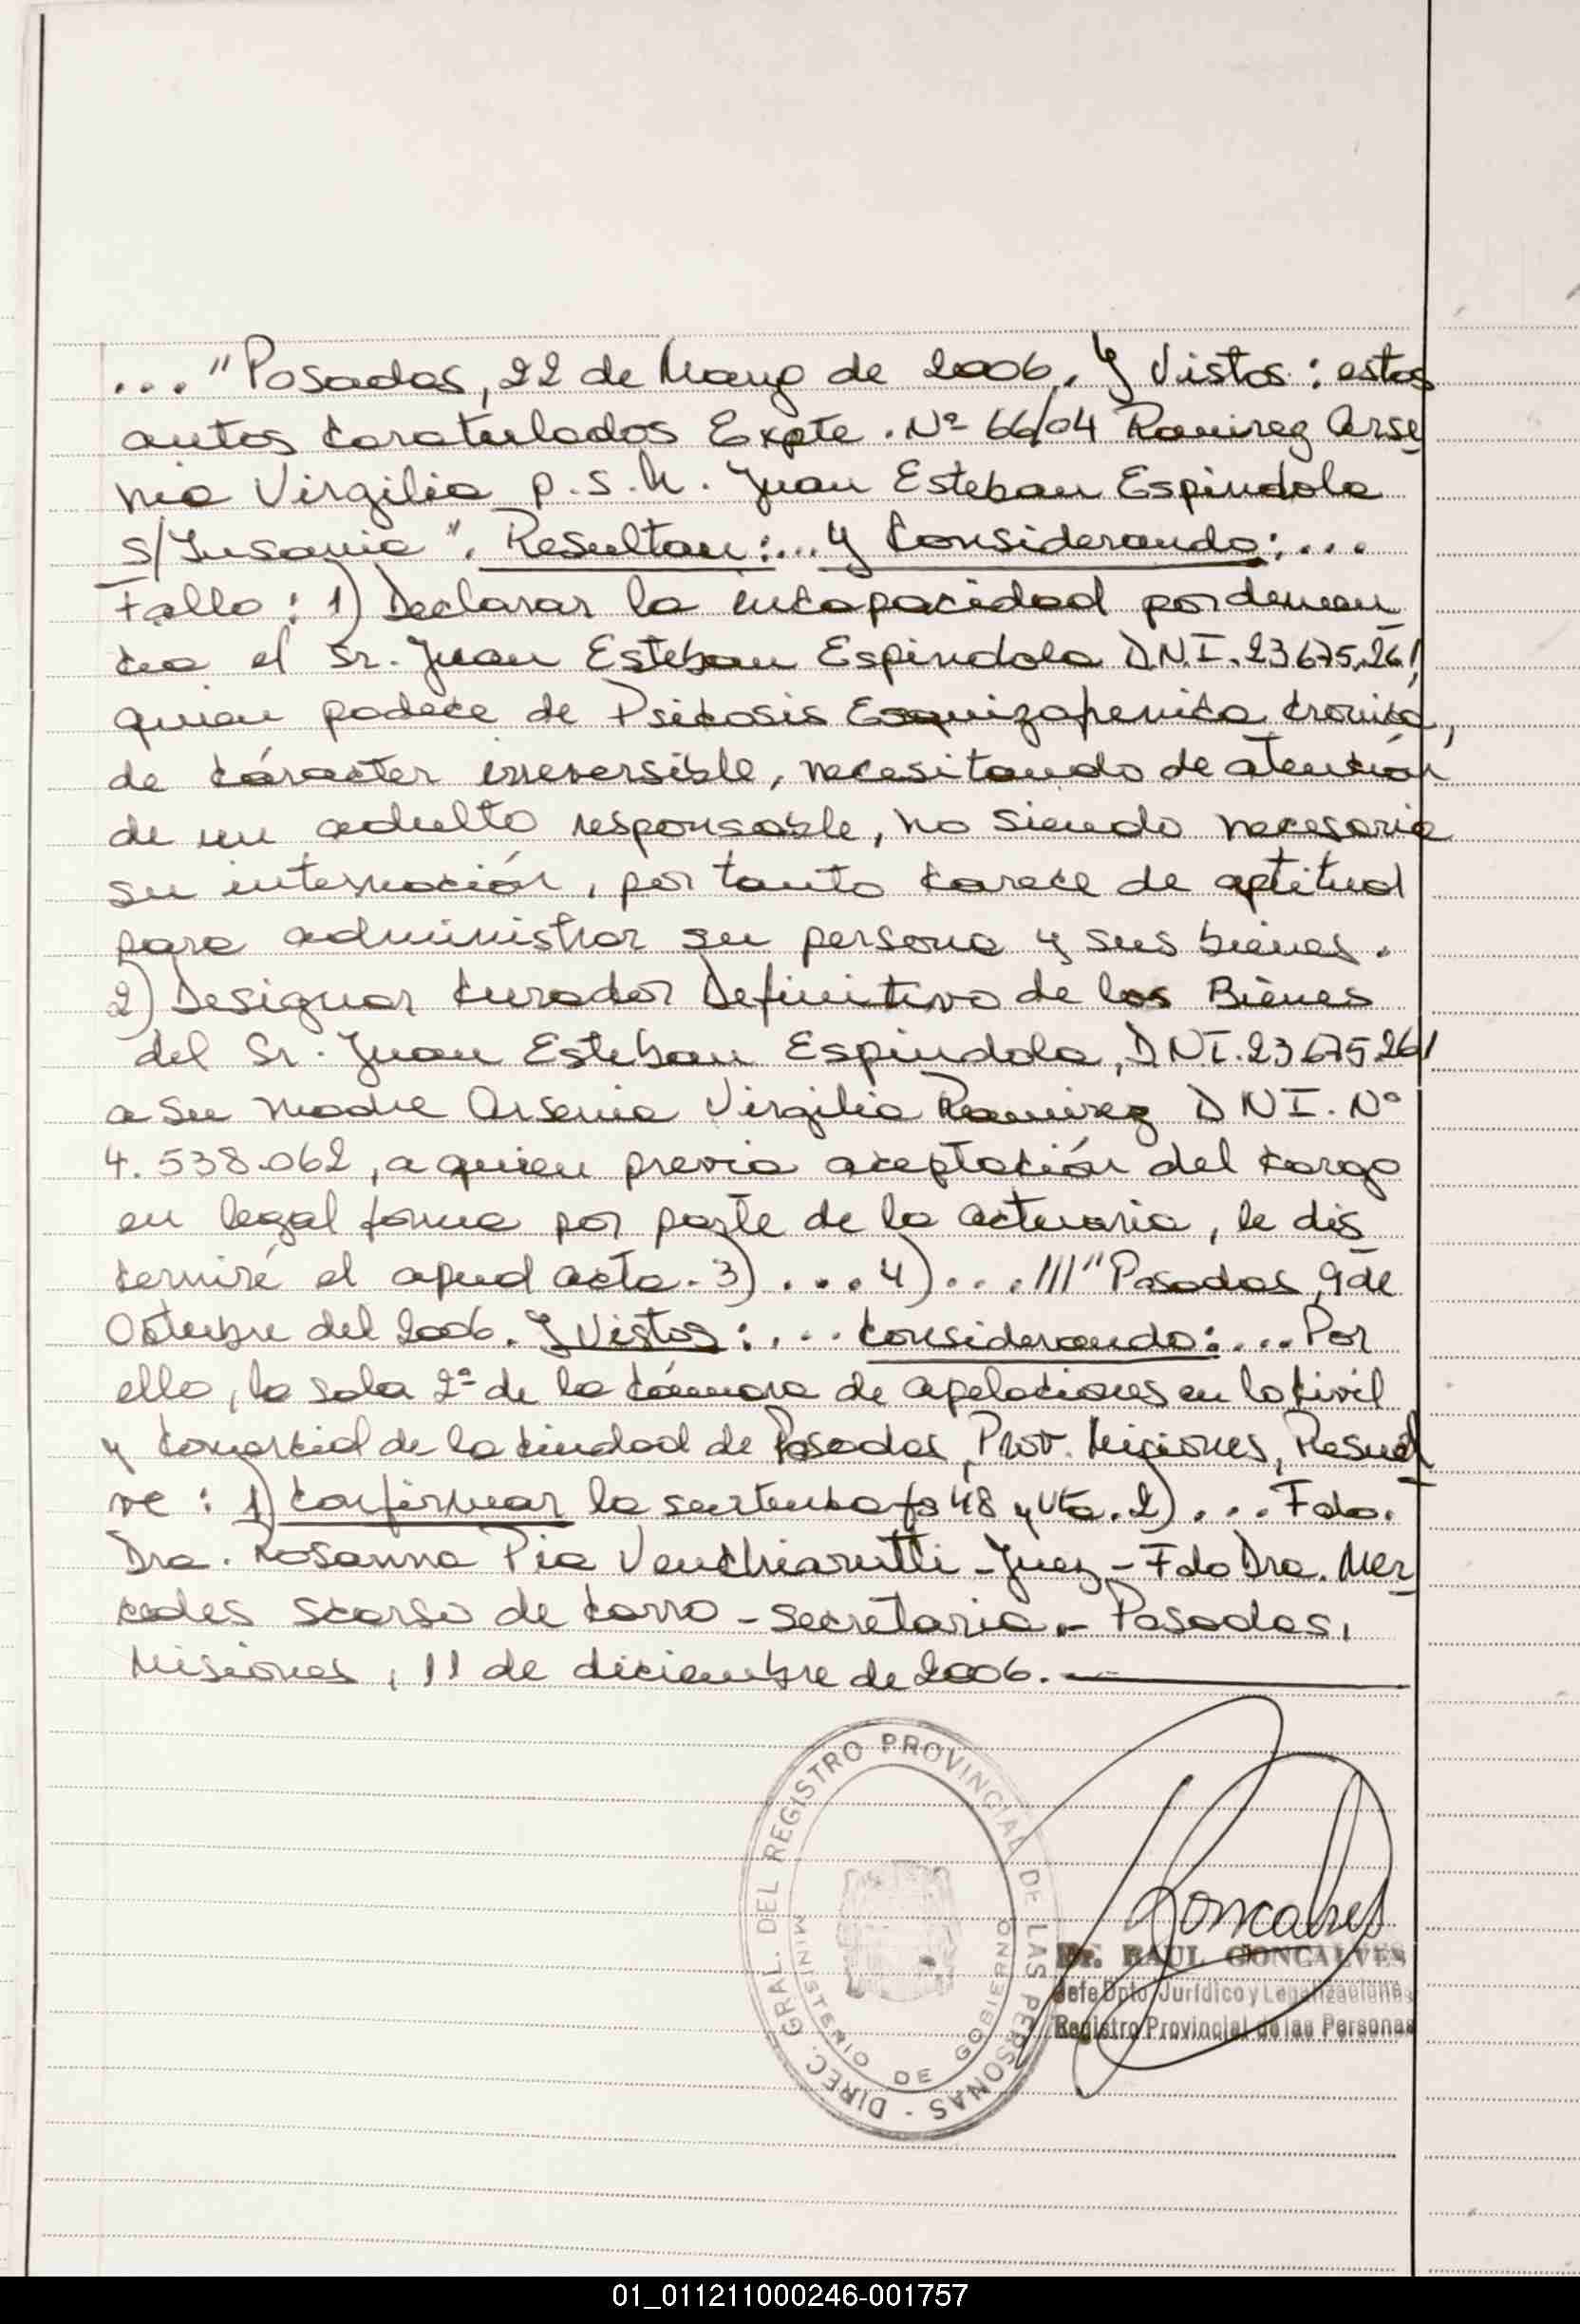 ..."Posadas, 22 de Mayo de 2006. Y Vistos: estos
autos caratulados Expte. Nº 66/04 Ramirez Arse
nia Virgilia p.s.h. Juan Esteban Espindola
s/Insania". Resultan:... y Considerando:...
Fallo: 1) Declarar la incapacidad por demen
cia el Sr. Juan Esteban Espindola D.N.I. 23.675.261,
quien padece de Psicosis Esquizofrenica cronica,
de cáracter irreversible, necesitando de atención
de un adulto responsable, no siendo necesaria
su internación, por tanto carece de aptitud
para administrar su persona y sus bienes.
2) Designar Curador Definitivo de los Bienes
del Sr. Juan Esteban Espindola, D.N.I. 23.675.261
a su madre Arsenia Virgilia Ramirez D N I. Nº
4.538.062, a quien previa aceptación del cargo
en legal forma por parte de la actuaria, le dis
cerniré el apud acta. 3).... 4)....///"Posadas, 9 de
Octubre del 2006. Y Vistos:... Considerando:... Por
ello, la sala 2ª de la Cámara de apelaciones en lo Civil
y Comercial de la Ciudad de Posadas, Prov. Misiones, Resuel
ve: 1) Confirmar la sentencia fs 48 y vta. 2)... Fdo.
Dra. Rosanna Pia Venchiarutti - Juez - Fdo Dra. Mer
cedes Scorso de Carro - Secretaria.- Posadas,
Misiones, 11 de diciembre de 2006.
DIREC. GRAL. DEL REGISTRO PROVINCIAL DE LAS PERSONAS -
MINISTERIO DE GOBIERNO
Goncalves
Dr. RAUL GONCALVES
Jefe Dpto. Jurídico y Legalizaciones
Registro Provincial de las Personas
01_011211000246-001757